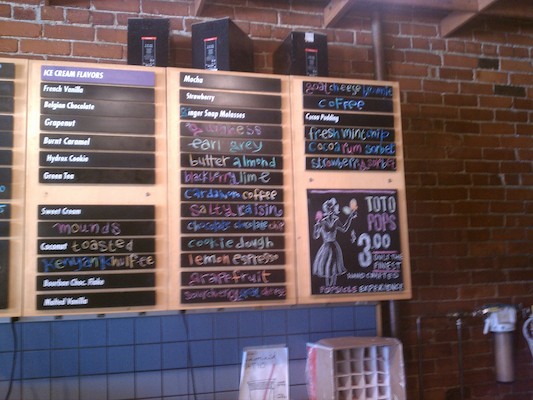 ICE CREAM FLAVORS
French Vanilla
Belgian Chocolate
Grapenut
Burnt Caramel
Hydrox Cookie
Green Tea
Sweet Cream
mounds
Coconut toasted
Bourbon Choc. Flake
Malted Vanilla
Mocha
Strawberry
Ginger Snap Molasses
earl grey
butter almond
blackberry lime
cardamom coffee
salty raisin
chocolate chocolate chip
cookie dough
lemon espresso
grapefruit
sour cherry goat cheese
goat cheese brownie
coffee
Cocoa Pudding
fresh mint chip
cocoa rum sorbet
strawberry sorbet
TOTO
POPS
$3.00
ONLY THE
FINEST
HAND CRAFTED
POPSICLE EXPERIENCE